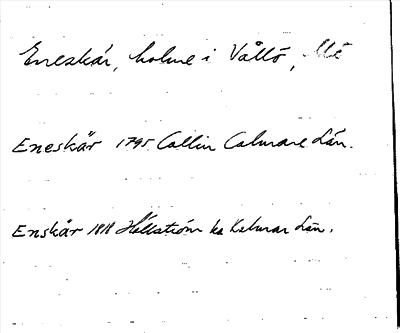 Eneskär, holme i Vållö, Mö
Eneskär 1795 Collin Calmare Län.
Enskär 1818 Hällström ka Kalmar Län.